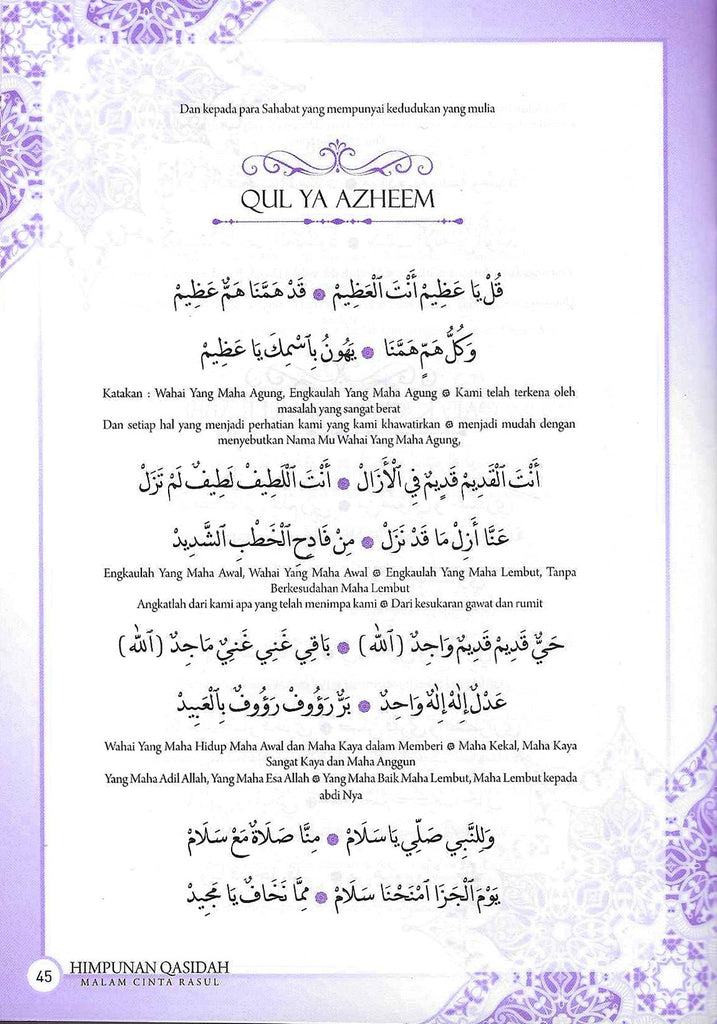 Dan kepada para Sahabat yang mempunyai kedudukan yang mulia
QUL YA AZHEEM
قُلْ يَا عَظِيمْ أَنْتَ الْعَظِيمْ ۞ قَدْ هَمَّنَا هَمٌّ عَظِيمْ
وَكُلُّ هَمٍّ هَمَّنَا ۞ يَهُونُ بِاسْمِكَ يَا عَظِيمْ
Katakan : Wahai Yang Maha Agung, Engkaulah Yang Maha Agung ۞ Kami telah terkena oleh
masalah yang sangat berat
Dan setiap hal yang menjadi perhatian kami yang kami khawatirkan ۞ menjadi mudah dengan
menyebutkan Nama Mu Wahai Yang Maha Agung,
أَنْتَ الْقَدِيمْ قَدِيمٌ فِي الْأَزَالْ ۞ أَنْتَ اللَّطِيفْ لَطِيفٌ لَمْ تَزَلْ
عَنَّا أَزِلْ مَا قَدْ نَزَلْ ۞ مِنْ فَادِحِ الْخَطْبِ الشَّدِيدْ
Engkaulah Yang Maha Awal, Wahai Yang Maha Awal ۞ Engkaulah Yang Maha Lembut, Tanpa
Berkesudahan Maha Lembut
Angkatlah dari kami apa yang telah menimpa kami ۞ Dari kesukaran gawat dan rumit
حَيٌّ قَدِيمْ قَدِيمٌ وَاجِدٌ (اللّٰه) ۞ بَاقِي غَنِي غَنِيٌ مَاجِدٌ (اللّٰه)
عَدْلٌ إِلٰهْ إِلٰهٌ وَاحِدٌ ۞ بَرٌّ رَؤُوفْ رَؤُوفٌ بِالْعَبِيدْ
Wahai Yang Maha Hidup Maha Awal dan Maha Kaya dalam Memberi ۞ Maha Kekal, Maha Kaya
Sangat Kaya dan Maha Anggun
Yang Maha Adil Allah, Yang Maha Esa Allah ۞ Yang Maha Baik Maha Lembut, Maha Lembut kepada
abdi Nya
وَلِلنَّبِي صَلِّي يَا سَلَامْ ۞ مِنَّا صَلَاةٌ مَعْ سَلَامْ
يَوْمَ الْجَزَا امْنَحْنَا سَلَامْ ۞ مِمَّا نَخَافُ يَا مَجِيدْ
45 HIMPUNAN QASIDAH
MALAM CINTA RASUL